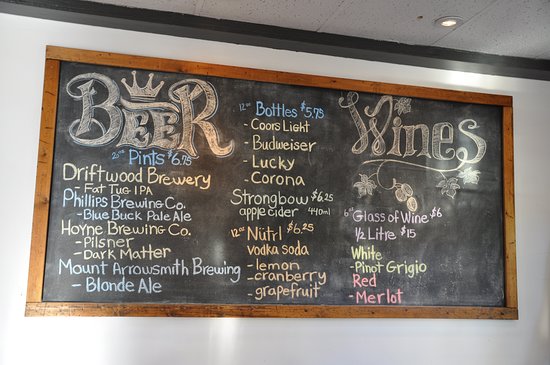 BEER
20oz Pints $6.75
Driftwood Brewery
- Fat Tug IPA
Phillips Brewing Co.
- Blue Buck Pale Ale
Hoyne Brewing Co.
- Pilsner
- Dark Matter
Mount Arrowsmith Brewing
- Blonde Ale
12oz Bottles $5.75
- Coors Light
- Budweiser
- Lucky
- Corona
Strongbow $6.25
apple cider 440ml
12oz Nütrl $6.25
vodka soda
- lemon
- cranberry
- grapefruit
Wines
6oz Glass of Wine $6
1/2 Litre $15
White
- Pinot Grigio
Red
- Merlot